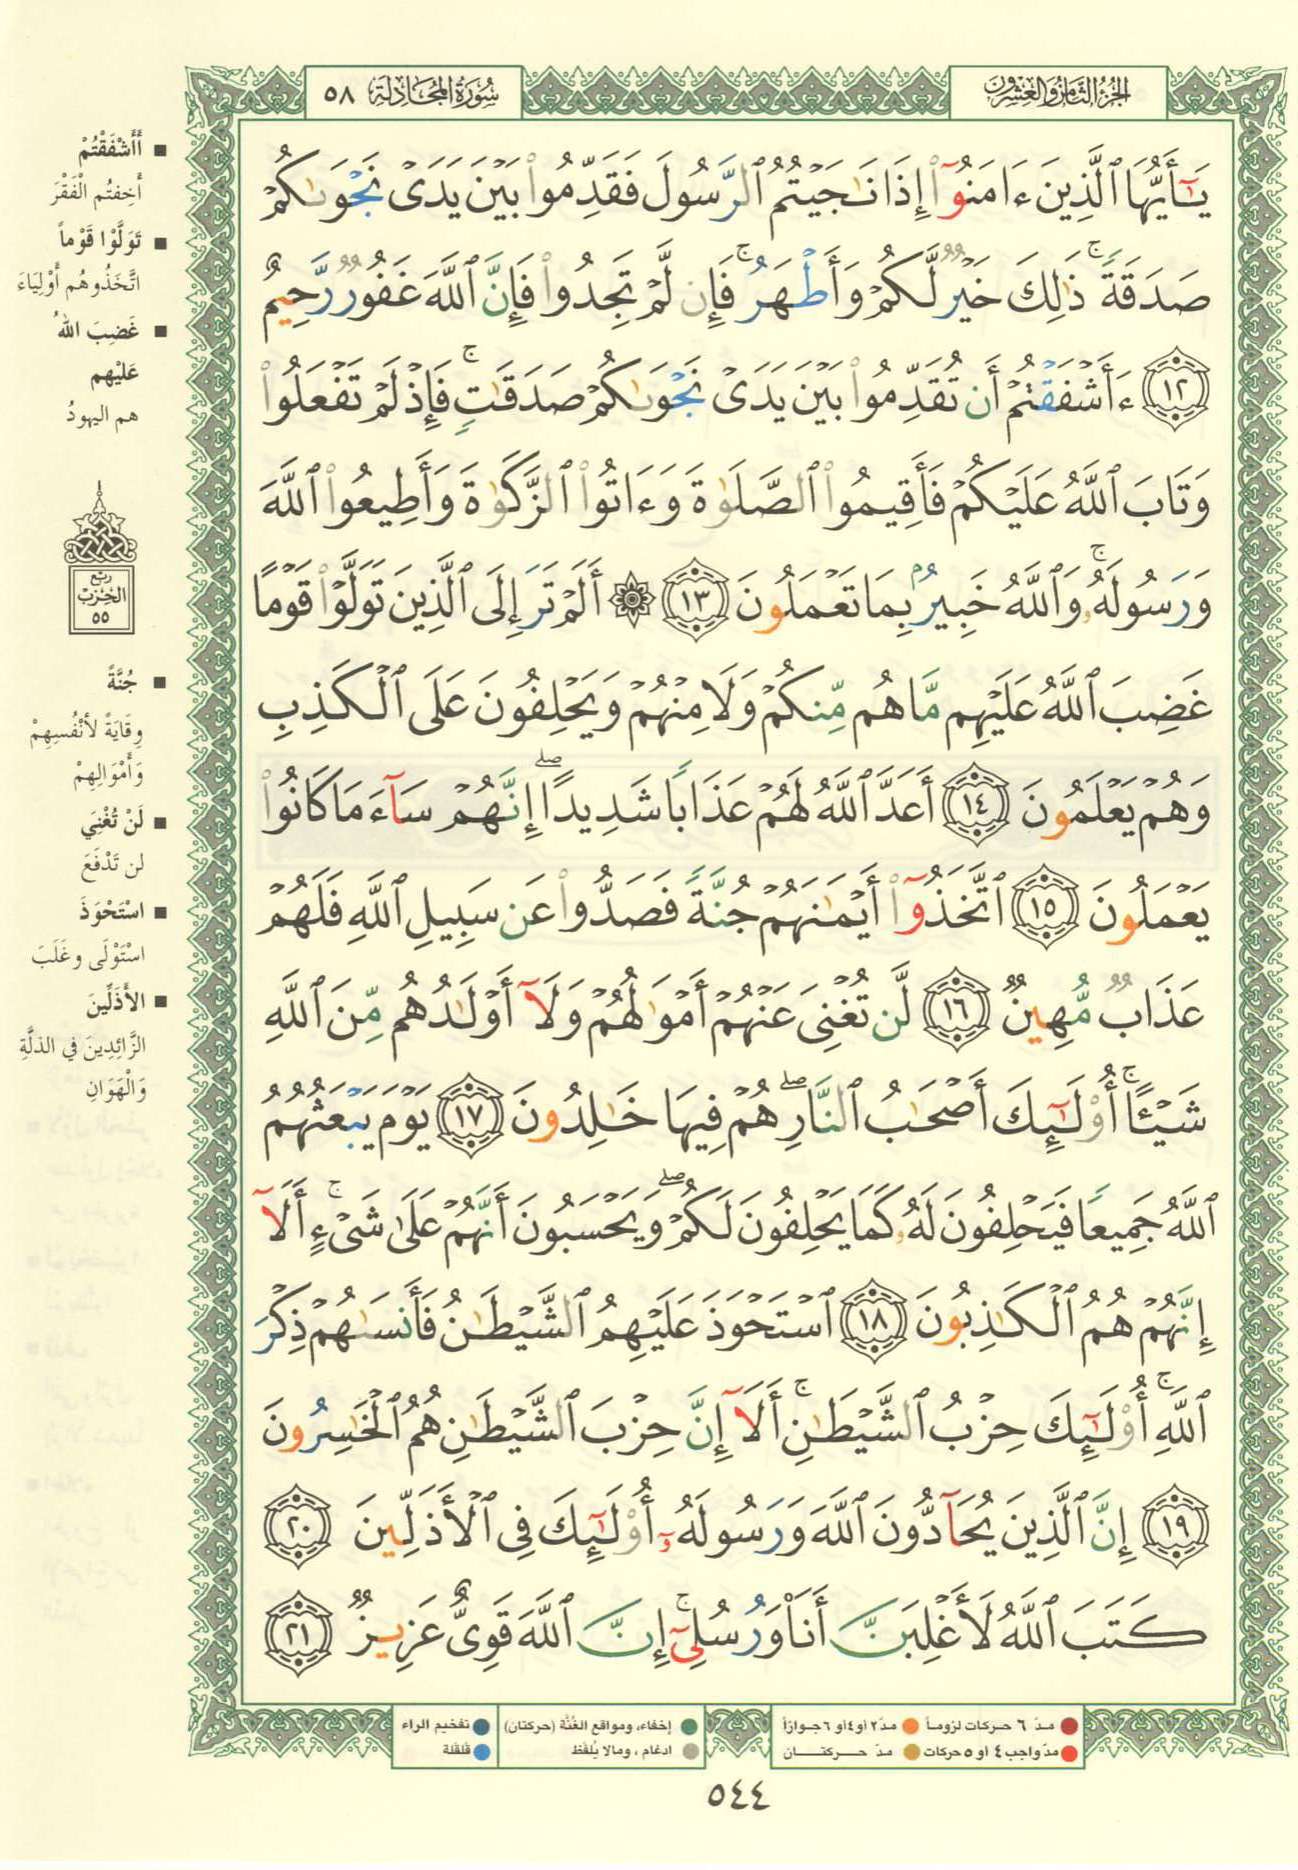 الجزء الثامن والعشرون
سورة المجادلة ٥٨
يَـٰٓأَيُّهَا ٱلَّذِينَ ءَامَنُوٓا۟ إِذَا نَـٰجَيْتُمُ ٱلرَّسُولَ فَقَدِّمُوا۟ بَيْنَ يَدَىْ نَجْوَىٰكُمْ
صَدَقَةً ۚ ذَٰلِكَ خَيْرٌ لَّكُمْ وَأَطْهَرُ ۚ فَإِن لَّمْ تَجِدُوا۟ فَإِنَّ ٱللَّهَ غَفُورٌ رَّحِيمٌ
١٢ ءَأَشْفَقْتُمْ أَن تُقَدِّمُوا۟ بَيْنَ يَدَىْ نَجْوَىٰكُمْ صَدَقَـٰتٍ ۚ فَإِذْ لَمْ تَفْعَلُوا۟
وَتَابَ ٱللَّهُ عَلَيْكُمْ فَأَقِيمُوا۟ ٱلصَّلَوٰةَ وَءَاتُوا۟ ٱلزَّكَوٰةَ وَأَطِيعُوا۟ ٱللَّهَ
وَرَسُولَهُۥ ۚ وَٱللَّهُ خَبِيرٌۢ بِمَا تَعْمَلُونَ ١٣ ۞ أَلَمْ تَرَ إِلَى ٱلَّذِينَ تَوَلَّوْا۟ قَوْمًا
غَضِبَ ٱللَّهُ عَلَيْهِم مَّا هُم مِّنكُمْ وَلَا مِنْهُمْ وَيَحْلِفُونَ عَلَى ٱلْكَذِبِ
وَهُمْ يَعْلَمُونَ ١٤ أَعَدَّ ٱللَّهُ لَهُمْ عَذَابًا شَدِيدًا ۖ إِنَّهُمْ سَآءَ مَا كَانُوا۟
يَعْمَلُونَ ١٥ ٱتَّخَذُوٓا۟ أَيْمَـٰنَهُمْ جُنَّةً فَصَدُّوا۟ عَن سَبِيلِ ٱللَّهِ فَلَهُمْ
عَذَابٌ مُّهِينٌ ١٦ لَّن تُغْنِىَ عَنْهُمْ أَمْوَٰلُهُمْ وَلَآ أَوْلَـٰدُهُم مِّنَ ٱللَّهِ
شَيْـًٔا ۚ أُو۟لَـٰٓئِكَ أَصْحَـٰبُ ٱلنَّارِ ۖ هُمْ فِيهَا خَـٰلِدُونَ ١٧ يَوْمَ يَبْعَثُهُمُ
ٱللَّهُ جَمِيعًا فَيَحْلِفُونَ لَهُۥ كَمَا يَحْلِفُونَ لَكُمْ ۖ وَيَحْسَبُونَ أَنَّهُمْ عَلَىٰ شَىْءٍ ۚ أَلَآ
إِنَّهُمْ هُمُ ٱلْكَـٰذِبُونَ ١٨ ٱسْتَحْوَذَ عَلَيْهِمُ ٱلشَّيْطَـٰنُ فَأَنسَىٰهُمْ ذِكْرَ
ٱللَّهِ ۚ أُو۟لَـٰٓئِكَ حِزْبُ ٱلشَّيْطَـٰنِ ۚ أَلَآ إِنَّ حِزْبَ ٱلشَّيْطَـٰنِ هُمُ ٱلْخَـٰسِرُونَ
١٩ إِنَّ ٱلَّذِينَ يُحَآدُّونَ ٱللَّهَ وَرَسُولَهُۥٓ أُو۟لَـٰٓئِكَ فِى ٱلْأَذَلِّينَ ٢٠
كَتَبَ ٱللَّهُ لَأَغْلِبَنَّ أَنَا۠ وَرُسُلِىٓ ۚ إِنَّ ٱللَّهَ قَوِىٌّ عَزِيزٌ ٢١
■ أَأَشْفَقْتُمْ
أَخِفتُم الْفَقْرَ
■ تَوَلَّوْا قَوْماً
اتَّخَذُوهُم أَوْلِيَاءَ
■ غَضِبَ اللهُ
عَلَيْهم
هم اليهودُ
ربع
الحزب
٥٥
■ جُنَّةً
وِقَايَةً لأَنْفُسِهِمْ
وَأَمْوَالِهِمْ
■ لَنْ تُغْنِي
لن تَدْفَعَ
■ اسْتَحْوَذَ
اسْتَوْلَى وغَلَبَ
■ الأَذَلِّينَ
الزَّائِدِينَ في الذلَّةِ
وَالْهَوَانِ
مدّ ٦ حركات لزوماً مدّ ٢ أو ٤ أو ٦ جوازاً
مدّ واجب ٤ أو ٥ حركات مدّ حركتان
إخفاء، ومواقع الغُنَّة (حركتان) تفخيم الراء
ادغام ، ومالا يُلفَظ قلقلة
٥٤٤